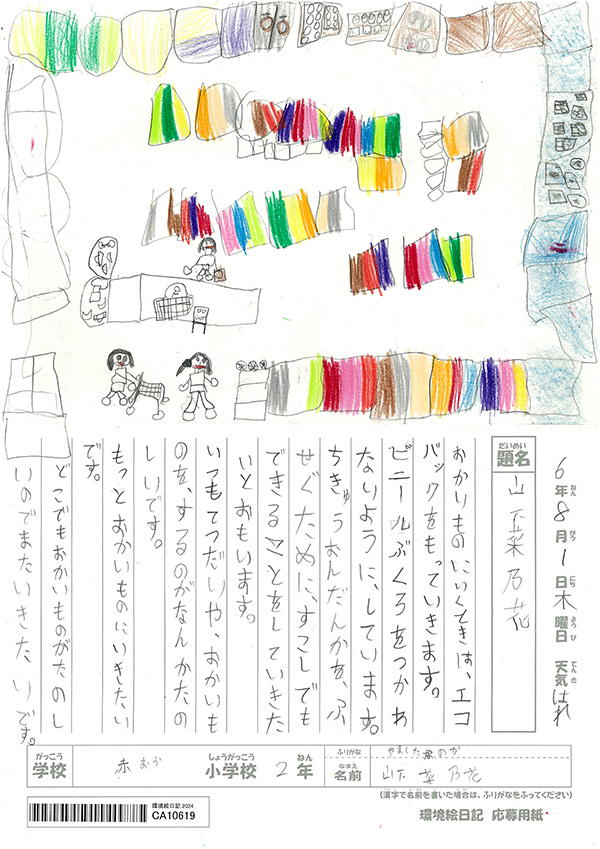 6年8月1日木曜日 天気 はれ
ねん がつ にち ようび てんき
だいめい
題名 山下菜乃花
おかいものにいくときは、エコ
バックをもっていきます。
ビニールぶくろをつかわ
ないように、しています。
ちきゅうおんだんかを、ふ
せぐために、すこしでも
できることをしていきた
いとおもいます。
いつもてつだいや、おかいも
のを、するのがなんかたの
しいです。
もっとおかいものにいきたい
です。
どこでもおかいものがたのし
いのでまたいきたいです。
がっこう しょうがっこう ねん ふりがな やましたなのか
学校 赤おか 小学校 2年 なまえ 名前 山下菜乃花
(漢字で名前を書いた場合は、ふりがなをふってください)
環境絵日記2024
CA10619
環境絵日記 応募用紙